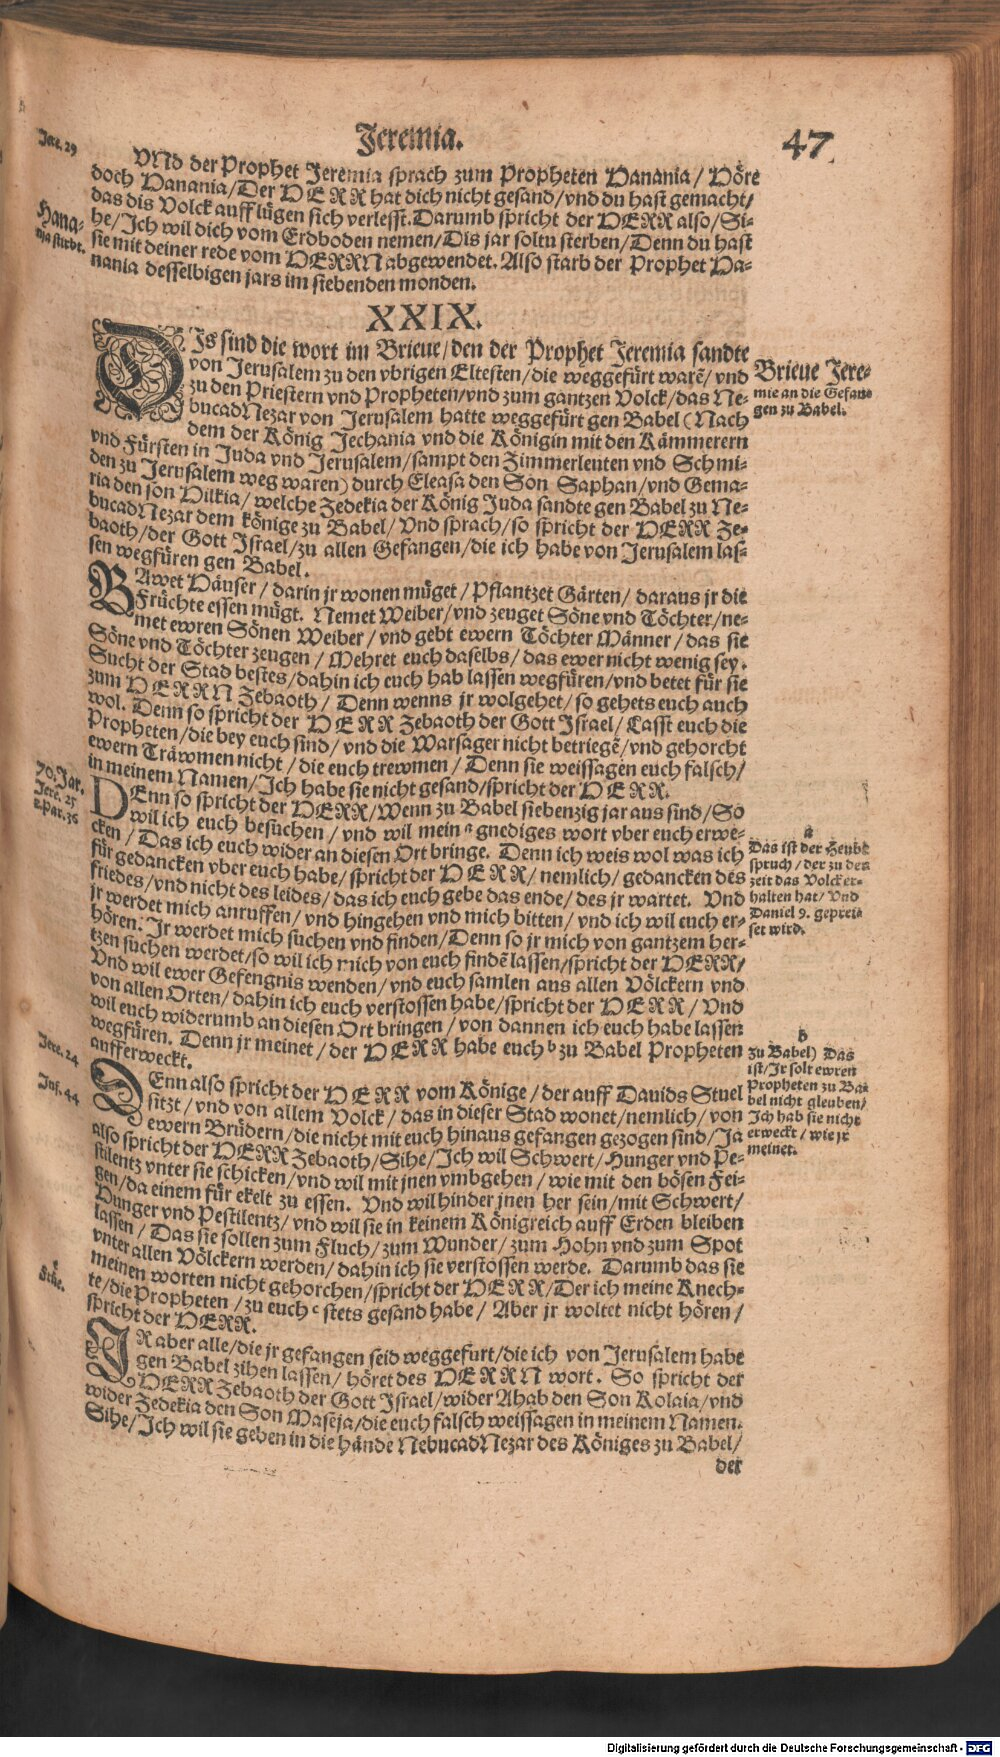 Jeremia.
47
Jere. 29
VNd der Prophet Jeremia sprach zum Propheten Hanania / Höre
doch Hanania/Der HERR hat dich nicht gesand/vnd du hast gemacht/
das dis Volck auff lügen sich verlesst. Darumb spricht der HERR also/Si-
he/Ich wil dich vom Erdboden nemen/Dis jar soltu sterben/Denn du hast
sie mit deiner rede vom HERRN abgewendet. Also starb der Prophet Ha-
nania desselbigen jars im siebenden monden.
Hana-
nia stirbt.
XXIX.
DIs sind die wort im Brieue/den der Prophet Jeremia sandte
von Jerusalem zu den vbrigen Eltesten/die weggefürt warẽ/vnd
zu den Priestern vnd Propheten/vnd zum gantzen Volck/das Ne-
bucadNezar von Jerusalem hatte weggefürt gen Babel (Nach
dem der König Jechania vnd die Königin mit den Kämmerern
vnd Fürsten in Juda vnd Jerusalem/sampt den Zimmerleuten vnd Schmi-
den zu Jerusalem weg waren) durch Eleasa den Son Saphan/vnd Gema-
ria den son Hilkia/welche Zedekia der König Juda sandte gen Babel zu Ne-
bucadNezar dem könige zu Babel/Vnd sprach/so spricht der HERR Ze-
baoth/der Gott Israel/zu allen Gefangen/die ich habe von Jerusalem las-
sen wegfüren gen Babel.
Brieue Jere-
mie an die Gefan-
gen zu Babel.
BAwet Häuser / darin jr wonen müget / Pflantzet Gärten / daraus jr die
Früchte essen mügt. Nemet Weiber/vnd zeuget Söne vnd Töchter/ne-
met ewren Sönen Weiber / vnd gebt ewern Töchter Männer / das sie
Söne vnd Töchter zeugen / Mehret euch daselbs / das ewer nicht wenig sey.
Sucht der Stad bestes/dahin ich euch hab lassen wegfüren/vnd betet für sie
zum HERRN Zebaoth / Denn wenns jr wolgehet/so gehets euch auch
wol. Denn so spricht der HERR Zebaoth der Gott Israel/Lasst euch die
Propheten/die bey euch sind/vnd die Warsager nicht betriegẽ/vnd gehorcht
ewern Träwmen nicht / die euch trewmen / Denn sie weissagen euch falsch/
in meinem Namen/Ich habe sie nicht gesand/spricht der HERR.
70. Jar.
Jere. 25
2. Par. 36
DEnn so spricht der HERR/Wenn zu Babel siebenzig jar aus sind/So
wil ich euch besuchen / vnd wil mein a gnediges wort vber euch erwe-
cken / Das ich euch wider an diesen Ort bringe. Denn ich weis wol was ich
für gedancken vber euch habe/spricht der HERR/nemlich/gedancken des
friedes/vnd nicht des leides/das ich euch gebe das ende/des jr wartet. Vnd
jr werdet mich anruffen/vnd hingehen vnd mich bitten/vnd ich wil euch er-
hören. Jr werdet mich suchen vnd finden/Denn so jr mich von gantzem her-
tzen suchen werdet/so wil ich mich von euch findẽ lassen/spricht der HERR/
Vnd wil ewer Gefengnis wenden/vnd euch samlen aus allen Völckern vnd
von allen Orten/dahin ich euch verstossen habe/spricht der HERR/Vnd
wil euch widerumb an diesen Ort bringen / von dannen ich euch habe lassen
wegfüren. Denn jr meinet/der HERR habe euch b zu Babel Propheten
aufferweckt.
a
Das ist der Heubt
spruch / der zu der
zeit das Volck er-
halten hat/Vnd
Daniel 9. geprei-
set wird.
b
zu Babel) Das
ist/Jr solt ewren
Propheten zu Ba-
bel nicht gleuben/
Ich hab sie nicht
erweckt / wie jr
meinet.
Jere. 24
Inf. 44
DEnn also spricht der HERR vom Könige/der auff Dauids Stuel
sitzt/vnd von allem Volck/das in dieser Stad wonet/nemlich/von
ewern Brüdern/die nicht mit euch hinaus gefangen gezogen sind/Ja
also spricht der HERR Zebaoth/Sihe/Ich wil Schwert/Hunger vnd Pe-
stilentz vnter sie schicken/vnd wil mit jnen vmbgehen/wie mit den bösen Fei-
gen/da einem für ekelt zu essen. Vnd wil hinder jnen her sein/mit Schwert/
Hunger vnd Pestilentz/vnd wil sie in keinem Königreich auff Erden bleiben
lassen / Das sie sollen zum Fluch/zum Wunder/zum Hohn vnd zum Spot
vnter allen Völckern werden/dahin ich sie verstossen werde. Darumb das sie
meinen worten nicht gehorchen/spricht der HERR/Der ich meine Knech-
te/die Propheten/zu euch c stets gesand habe/Aber jr woltet nicht hören/
spricht der HERR.
c
JR aber alle/die jr gefangen seid weggefurt/die ich von Jerusalem habe
gen Babel zihen lassen / höret des HERRN wort. So spricht der
HERR Zebaoth der Gott Israel/wider Ahab den Son Kolaia/vnd
wider Zedekia den Son Maseja/die euch falsch weissagen in meinem Namen.
Sihe/Ich wil sie geben in die hände NebucadNezar des Königes zu Babel/
der
Digitalisierung gefördert durch die Deutsche Forschungsgemeinschaft - DFG